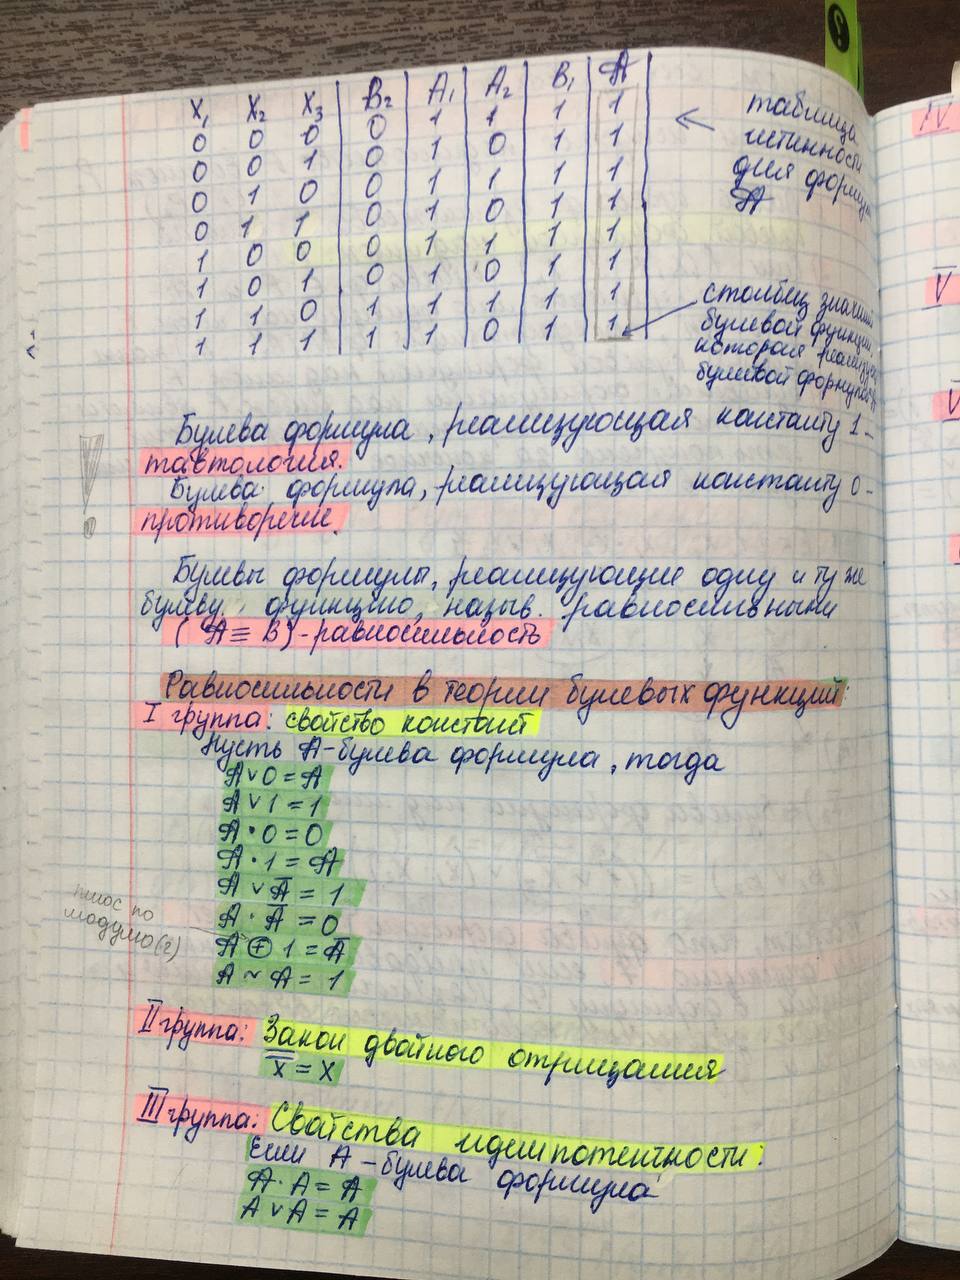 X₁ X₂ X₃ B₂ A₁ A₂ B₁ A
0 0 0 0 1 1 1 1
0 0 1 0 1 0 1 1
0 1 0 0 1 1 1 1
0 1 1 0 1 0 1 1
1 0 0 0 1 1 1 1
1 0 1 0 1 0 1 1
1 1 0 1 1 1 1 1
1 1 1 1 1 0 1 1
←
таблица
истинности
для формулы
A
столбец значений
булевой функции,
которая реализует
булевой формулой
!
Булева формула, реализующая константу 1 –
тавтология.
Булева формула, реализующая константу 0 –
противоречие.
Булевы формулы, реализующие одну и ту же
булеву функцию, назыв. равносильными
(A ≡ B) - равносильность
Равносильности в теории булевых функций:
I группа: свойство констант
Пусть A - булева формула, тогда
A ∨ 0 = A
A ∨ 1 = 1
A · 0 = 0
A · 1 = A
A ∨ A̅ = 1
A · A̅ = 0
плюс по
модулю (2)
A ⊕ 1 = A̅
A ~ A = 1
II группа: Закон двойного отрицания
x̿ = x
III группа: Свойства идемпотентности:
Если A - булева формула
A · A = A
A ∨ A = A
IV
V